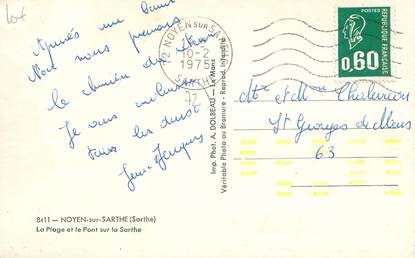 Lot
Après un bain
Nous nous prenons
le chemin du
Je vous embrasse
tous les deux
Jean-Jacques
72 NOYEN SUR SARTHE
10-2
1975
SARTHE
POSTES
0,60
REPUBLIQUE FRANÇAISE
Imp. Phot. A. DOLBEAU - Le Mans
Véritable Photo au Bromure - Reprod. Interdite
St Georges de Mons
63
8411 — NOYEN-sur-SARTHE (Sarthe)
La Plage et le Pont sur la Sarthe